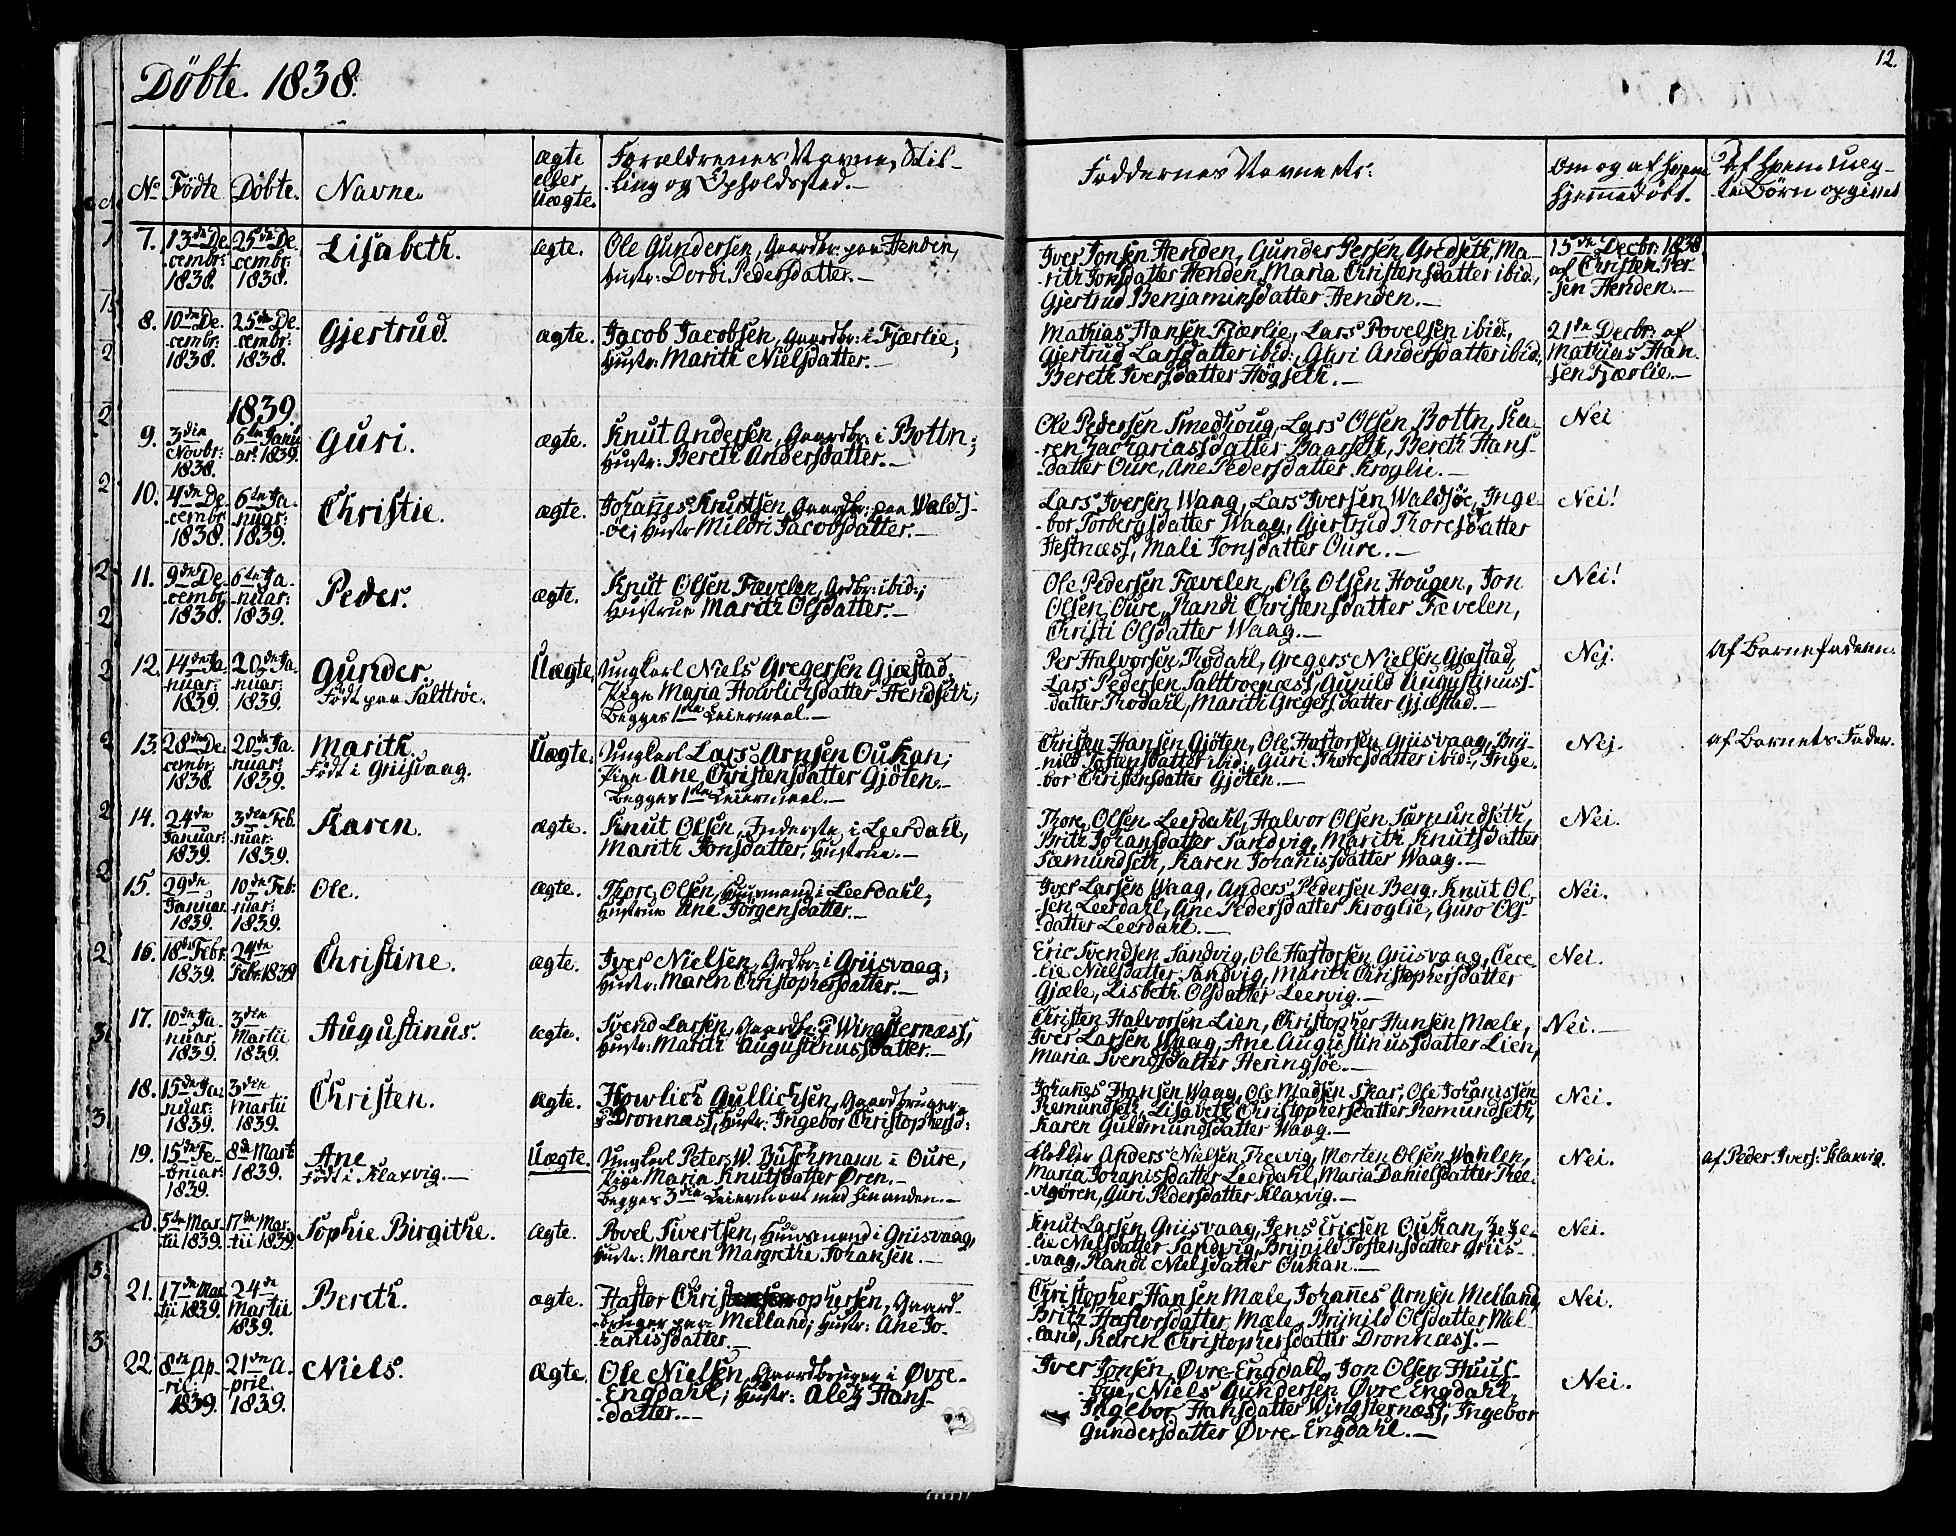 Döbte. 1838.
12.
No. Födte Döbte. Navne. ægte eller Uægte. Forældrenes Navne, Stilling og Opholdssted.—
Faddernes Navne etc: Om og af hvem hjemmedöbt. Af hvem uægte Börn opgivet
7. 13de December: 1838. 25de December: 1838. Lisabeth. ægte.
Ole Gundersen, Gaardbr: paa Henden,
Hustr: Dordi Pedersdatter.—
Iver Jonsen Henden, Gunder Persen Gredseth, Ma-
-rith Jonsdatter Henden, Maria Christensdatter ibid:,
Gjertrud Benjaminsdatter Henden.—
15de Decbr: 1838
af Christen Per-
sen Henden.—
8. 10de December: 1838. 25de December: 1838. Gjertrud. ægte.
Jacob Jacobsen, Gaardbr: i Fjærlie;
Hustr: Marith Nielsdatter.—
Mathias Hansen Fjærlie, Lars Povelsen ibid:,
Gjertrud Larsdatter ibid:, Guri Andersdatter ibid:,
Bereth Iversdatter Högseth.—
21de Decbr: af
Mathias Han-
sen Fjærlie.—
1839.
9. 3die Novbr: 1838. 6te Januar: 1839. Guri. ægte.
Knut Andersen, Gaardbr: i Bottn;
Hustr: Bereth Andersdatter.—
Ole Pedersen Smedhoug, Lars Olsen Bottn, Ka-
-ren Zachariasdatter Baarseth, Bereth Hans-
-datter Oure, Ane Pedersdatter Kroglie.—
Nei
10. 4de December 1838. 6te Januar: 1839. Christie. ægte.
Johannes Knutsen, Gaardbr: paa Walds-
-öe; Hustr Mildri Jacobsdatter.—
Lars Iversen Waag, Lars Iversen Waldsöe, Inge-
-bor Torbergsdatter Waag, Gjertrud Thoresdatter
Hestnæss, Mali Jonsdatter Oure.—
Nei!
11. 9de December 1838. 6te Januar: 1839. Peder. ægte.
Knut Olsen Fævelen, Grdbr: ibid:;
Hustrue Marith Olsdatter.—
Ole Pedersen Fævelen, Ole Olsen Hougen, Jon
Olsen Oure, Randi Christensdatter Fævelen,
Christi Olsdatter Waag.—
Nei!
12. 14de Januar: 1839. 20de Januar: 1839. Gunder.
Födt paa Salttröe. Uægte,
Ungkarl Niels Gregersen Gjæstad,
Pige Maria Howlichsdatter Hendseth;
Begges 1ste Leiermaal.—
Per Halvorsen Rodahl, Gregers Nielsen Gjæstad,
Lars Pedersen Salttroenæss, Gunild Augustinus-
-datter Rodahl, Marith Gregersdatter Gjæstad.—
Nej.
Af Barnefaderen.
13. 28de December: 1838. 20de Januar: 1839. Marith.
Födt i Griisvaag. Uægte:
Ungkarl Lars Arnsen Oukan;
Pige Ane Christensdatter Gjöten.—
Begges 1ste Leiermaal.—
Christen Hansen Gjöten, Ole Haftorsen Griisvaag, Brij-
-nild Tostensdatter ibid:, Guri Thoresdatter ibid:, Inge-
bor Christensdatter Gjöten.—
Nej.
af Barnets Fader.
14. 24de Januar: 1839. 3die Februar: 1839. Karen. ægte.
Knut Olsen, Inderste i Leerdahl,
Marith Jonsdatter, Hustrue.—
Thore Olsen Leerdahl, Halvor Olsen Sæmundseth,
Brith Johansdatter Sandvig, Marith Knutsdatter
Sæmundseth, Karen Johanisdatter Waag.—
Nei.
15. 29de Januar 1839. 10de Februar: 1839. Ole. ægte.
Thore Olsen, Huusmand i Leerdahl,
Hustrue Ane Jörgensdatter.—
Iver Larsen Waag, Anders Pedersen Berg, Knut Ol-
-sen Leerdahl, Ane Pedersdatter Kroglie, Guro Ols-
-datter Leerdahl.—
Nei.
16. 18de Febr: 1839. 24de Febr: 1839 Christine. ægte.
Iver Nielsen, Grdbr: i Griisvaag;
Hustr: Maren Christophersdatter.—
Eric Svendsen Sandvig, Ole Haftorsen Griisvaag, Cece-
-lie Nielsdatter Sandvig, Marith Christophersdatter
Gjæle, Lisbeth Olsdatter Leervig.—
Nei.
17. 10de Januar: 1839. 3die Martii 1839. Augustinus. ægte.
Svend Larsen, Gaardbr: i Wingsternæss,
Hustr: Marith Augustinusdatter.—
Christen Halvorsen Lien, Christopher Hansen Mæle,
Iver Larsen Waag, Ane Augustinusdatter Lien,
Maria Svendsdatter Heringsöe.—
Nei.—
18. 15de Januar: 1839. 3die Martii 1839. Christen. ægte.
Howlich Gullichsen, Gaardbruger
i Dronnæss, Hustr: Ingebor Christophersd:
Johañes Hansen Waag, Ole Madsen Skar, Ole Johanissen
Remundseth, Lisabeth Christophersdatter Remundseth,
Karen Guldmundsdatter Waag.—
Nei.
19. 15de Februar: 1839. 8de Marti 1839. Ane
Födt i Klaxvig.— Uægte.
Ungkarl Peter W. Buschmann i Oure,
Pige Maria Knutsdatter Ören.—
Begges 3die Leiermaal med hinanden.—
Klokker Anders Nielsen Theevig, Morten Olsen Wahlen,
Maria Johanisdatter Leerdahl, Maria Danielsdatter Thee-
-vigören, Guri Pedersdatter Klaxvig.—
Nei.
af Peder Ivers: Klaxvig.
20. 5te Martii 1839. 17de Martii 1839. Sophie Birgithe. ægte.
Povel Sivertsen, Huusmand i Griisvaag,
Hustr: Maren Margrethe Johansen.—
Knut Larsen Griisvaag, Jens Ericsen Oukan, Zeze-
-lie Nielsdatter Sandvig, Brijnild Tostensdatter Griis-
-vaag, Randi Nielsdatter Oukan.—
Nei.
21. 17de Martii 1839. 24de Martii 1839. Bereth. ægte.
Haftor Christophersen, Gaard-
-bruger paa Melland; Hustr: Ane Jo-
-hanisdatter.—
Christopher Hansen Mæle, Johañes Arnsen Melland,
Brith Haftorsdatter Mæle, Brijnild Olsdatter Mel-
-land, Karen Christophersdatter Dronnæss.—
Nei.
22. 8de April: 1839. 21de April 1839. Niels. Ægte.
Ole Nielsen, Gaardbruger i Øvre-
-Engdahl; Hustr: Aleh Hans-
-datter.—
Iver Jonsen, Øvre-Engdahl, Jon Olsen Huus-
-bye, Niels Gundersen Øvre Engdahl,
Ingebor Hansdatter Wingsternæss, Ingebor
Gundersdatter Øvre-Engdahl.—
Nei.